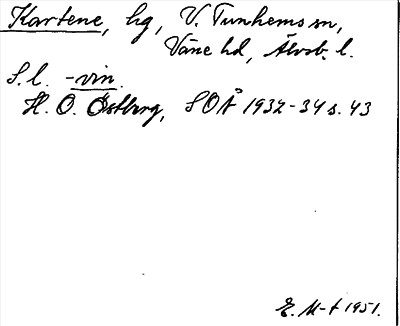 Kartene, hg, V. Tunhems sn,
Väne hd, Älvsb. l.
S. l. -vin.
H. O. Östberg, SOÅ 1932-34 s. 43
E. M-t 1951.